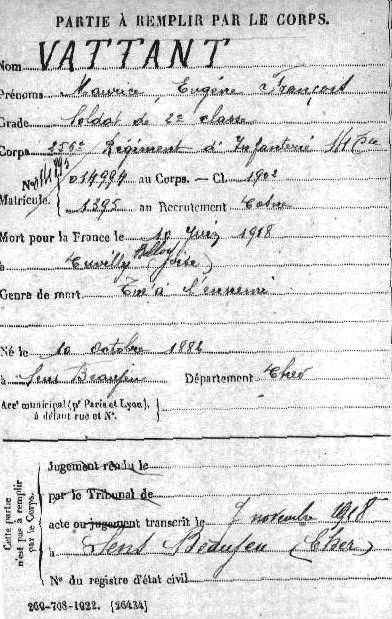 PARTIE À REMPLIR PAR LE CORPS.
Nom VATTANT
Prénoms Maurice Eugène François
Grade Soldat de 2e classe
Corps 256e Régiment d'Infanterie
No 014994 au Corps. — Cl. 1902
Matricule. 1395 au Recrutement
Mort pour la France le 10 Juin 1918
Belloy
à Cuvilly (Oise)
Genre de mort Tué à l'ennemi
Né le 10 octobre 1882
à Sens Beaujeu Département Cher
Arrt municipal (pr Paris et Lyon),
à défaut rue et N°.
Cette partie n'est pas à remplir par le Corps.
Jugement rendu le
par le Tribunal de
acte ou jugement transcrit le 7 novembre 1918
à Sens Beaujeu (Cher)
N° du registre d'état civil
269-708-1922. [26434]